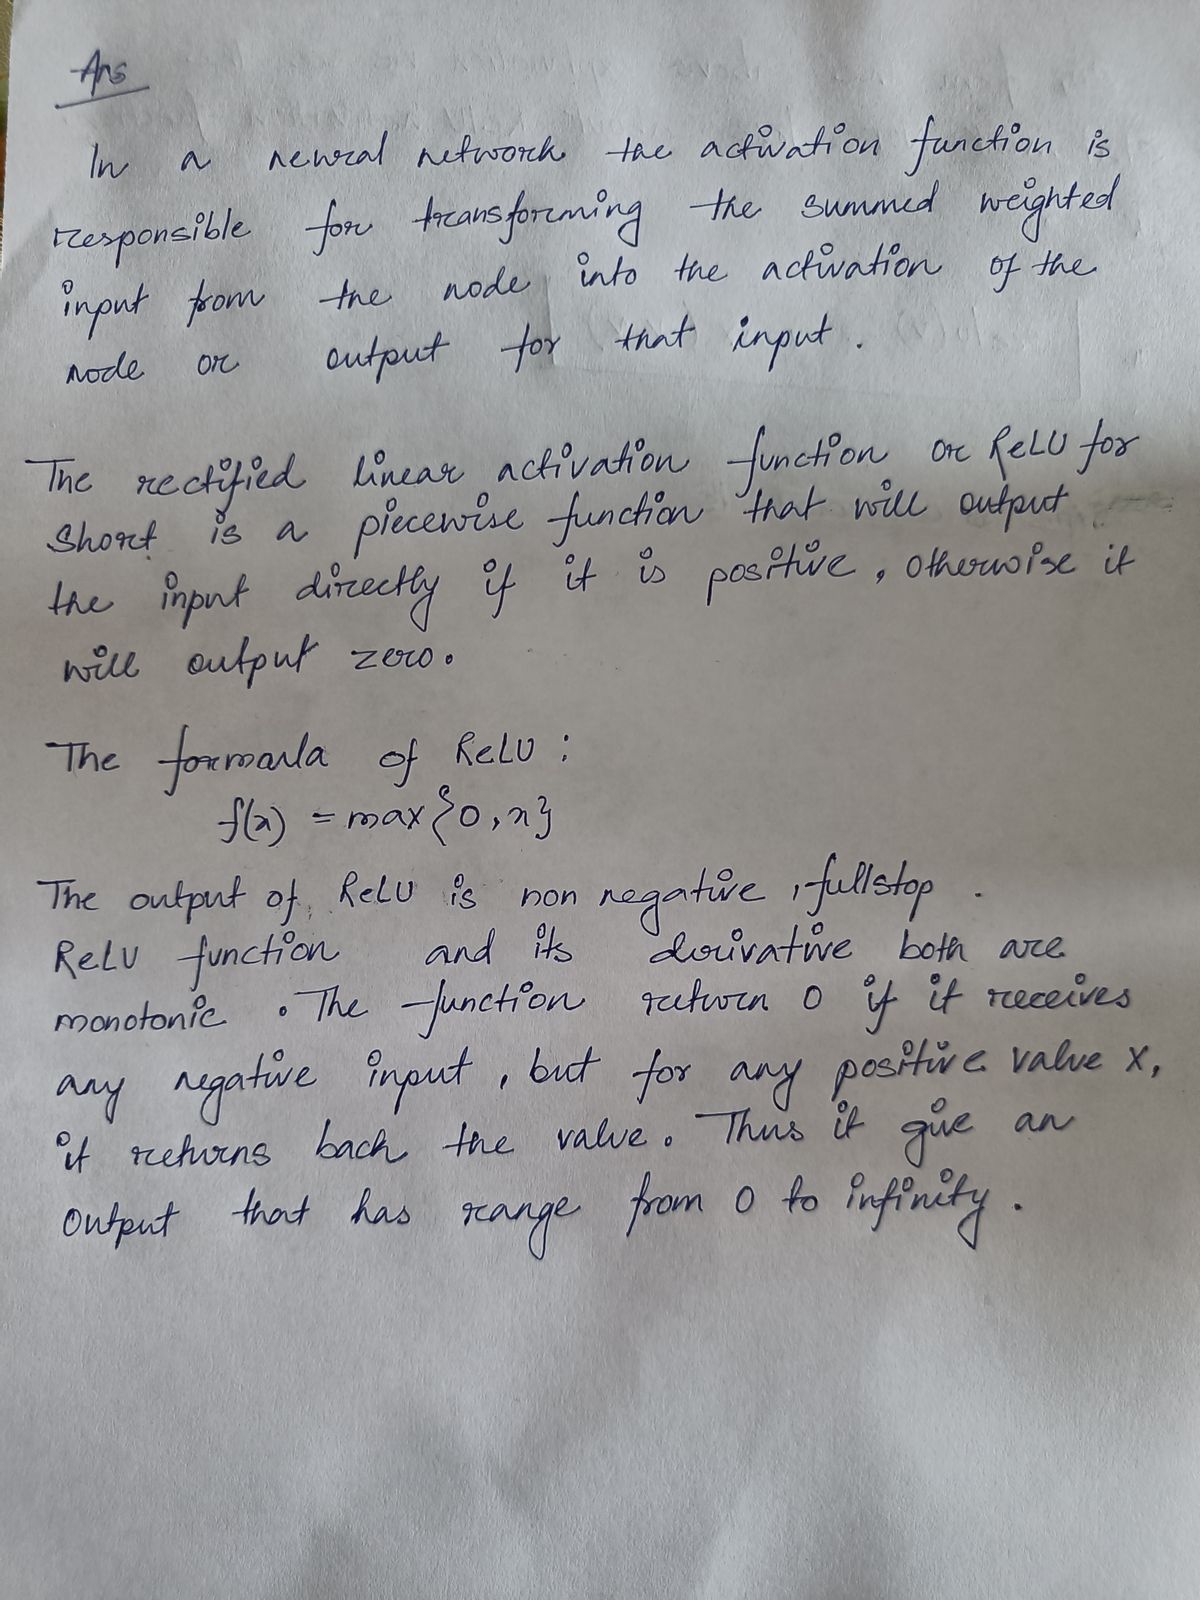 Ans
In a neural network the activation function is
responsible for transforming the summed weighted
input from the node into the activation of the
node or output for that input.
The rectified linear activation function or ReLU for
Short is a piecewise function that will output
the input directly if it is positive, otherwise it
will output zero.
The formula of ReLU :
f(x) = max{0,x}
The output of ReLU is non negative, fullstop.
ReLU function and its derivative both are
monotonic. The function return 0 if it receives
any negative input, but for any positive value x,
it returns back the value. Thus it give an
Output that has range from 0 to infinity.